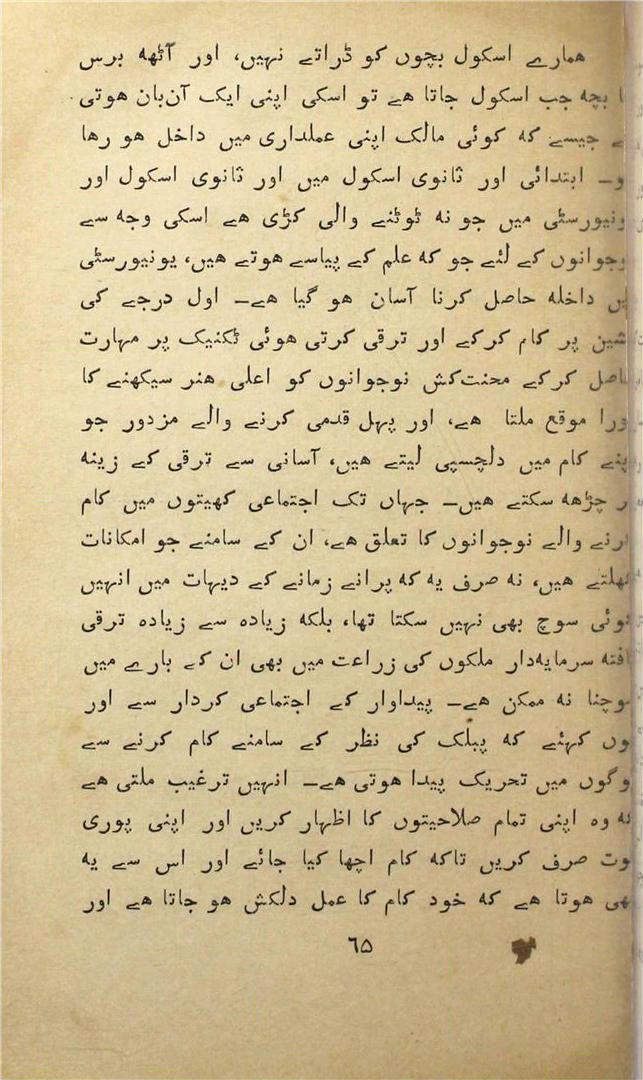 همارے اسکول بچوں کو ڈراتے نہیں، اور آٹھه برس
کا بچه جب اسکول جاتا ھے تو اسکی اپنی ایک آن‌بان ھوتی
ھے جیسے که کوئی مالک اپنی عملداری میں داخل ھو رھا
ھو۔ ابتدائی اور ثانوی اسکول میں اور ثانوی اسکول اور
یونیورسٹی میں جو نه ٹوٹنے والی کڑی ھے اسکی وجه سے
نوجوانوں کے لئے جو که علم کے پیاسے ھوتے ھیں، یونیورسٹی
میں داخله حاصل کرنا آسان ھو گیا ھے۔ اول درجے کی
مشین پر کام کرکے اور ترقی کرتی ھوئی ٹکنیک پر مہارت
حاصل کرکے محنت‌کش نوجوانوں کو اعلی ھنر سیکھنے کا
پورا موقع ملتا ھے، اور پہل قدمی کرنے والے مزدور جو
اپنے کام میں دلچسپی لیتے ھیں، آسانی سے ترقی کے زینه
پر چڑھه سکتے ھیں۔ جہاں تک اجتماعی کھیتوں میں کام
کرنے والے نوجوانوں کا تعلق ھے، ان کے سامنے جو امکانات
کھلتے ھیں، نه صرف یه که پرانے زمانے کے دیہات میں انہیں
کوئی سوچ بھی نہیں سکتا تھا، بلکه زیادہ سے زیادہ ترقی
یافته سرمایه‌دار ملکوں کی زراعت میں بھی ان کے بارے میں
سوچنا نه ممکن ھے۔ پیداوار کے اجتماعی کردار سے اور
یوں کہئے که پبلک کی نظر کے سامنے کام کرنے سے
لوگوں میں تحریک پیدا ھوتی ھے۔ انہیں ترغیب ملتی ھے
که وہ اپنی تمام صلاحیتوں کا اظہار کریں اور اپنی پوری
قوت صرف کریں تاکه کام اچھا کیا جائے اور اس سے یه
بھی ھوتا ھے که خود کام کا عمل دلکش ھو جاتا ھے اور
٦٥